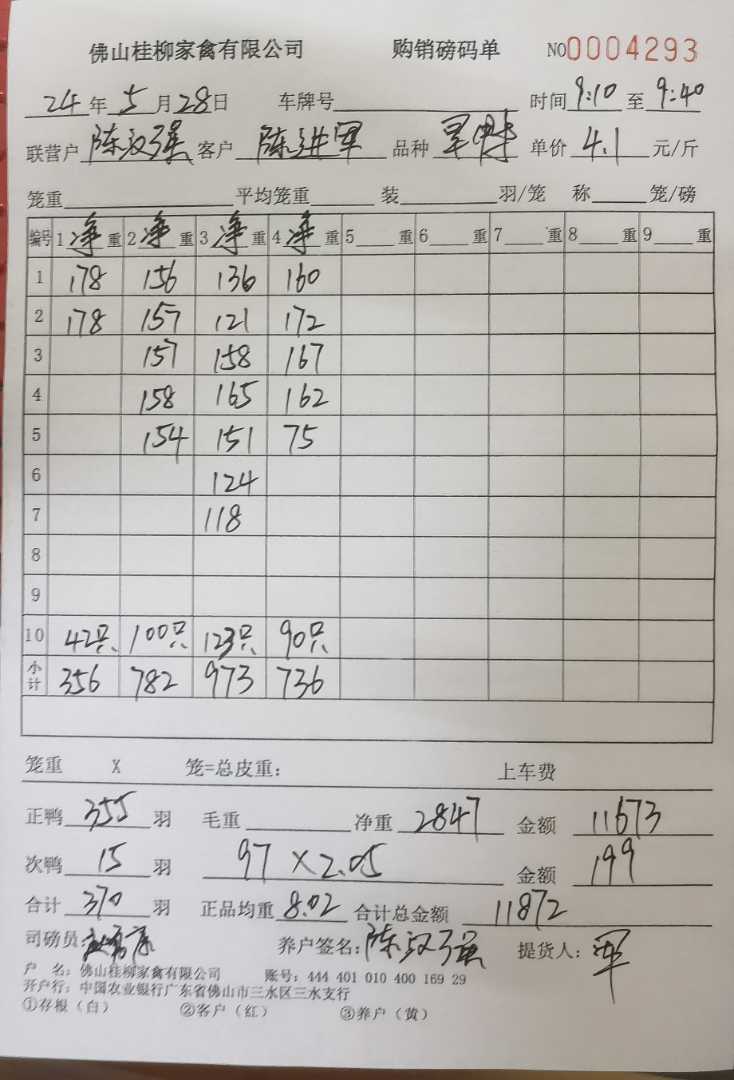 佛山桂柳家禽有限公司 购销磅码单 NO0004293
24年5月28日 车牌号 时间9:10至9:40
联营户 陈汉强 客户 陈进军 品种 单价4.1元/斤
笼重 平均笼重 装 羽/笼 称 笼/磅
编号 1净重 2净重 3净重 4净重 5 重 6 重 7 重 8 重 9 重
1 178 156 136 160
2 178 157 121 172
3 157 158 167
4 158 165 162
5 154 151 75
6 124
7 118
8
9
10 42只 100只 123只 90只
小计 356 782 973 736
笼重 X 笼=总皮重： 上车费
正鸭355羽 毛重 净重2847 金额11673
次鸭15羽 97×2.05 金额199
合计370羽 正品均重8.02 合计总金额11872
司磅员： 养户签名：陈汉强 提货人：军
户 名：佛山桂柳家禽有限公司 账号：444 401 010 400 169 29
开户行：中国农业银行广东省佛山市三水区三水支行
①存根（白） ②客户（红） ③养户（黄）